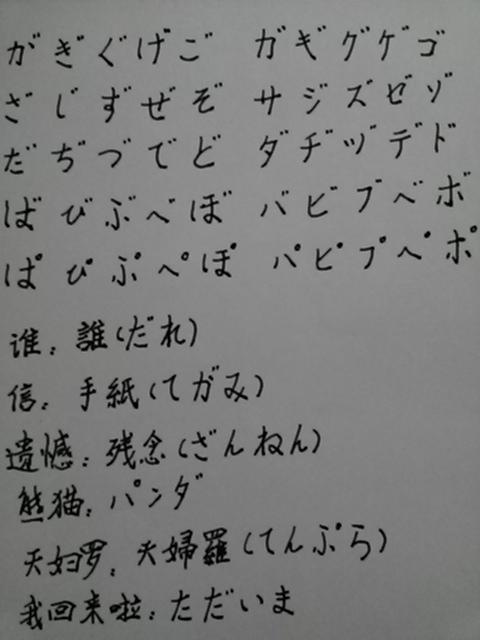 がぎぐげご ガギグゲゴ
ざじずぜぞ サジズゼゾ
だぢづでど ダヂヅデド
ばびぶべぼ バビブベボ
ぱぴぷぺぽ パピプペポ
谁：誰(だれ)
信：手紙(てがみ)
遗憾：残念(ざんねん)
熊猫：パンダ
天妇罗：天婦羅(てんぷら)
我回来啦：ただいま